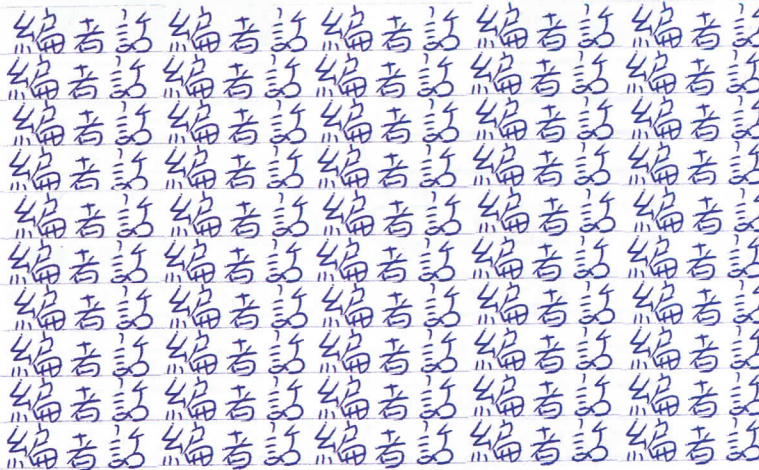 編者話 編者話 編者話 編者話 編者話
編者話 編者話 編者話 編者話 編者話
編者話 編者話 編者話 編者話 編者話
編者話 編者話 編者話 編者話 編者話
編者話 編者話 編者話 編者話 編者話
編者話 編者話 編者話 編者話 編者話
編者話 編者話 編者話 編者話 編者話
編者話 編者話 編者話 編者話 編者話
編者話 編者話 編者話 編者話 編者話
編者話 編者話 編者話 編者話 編者話